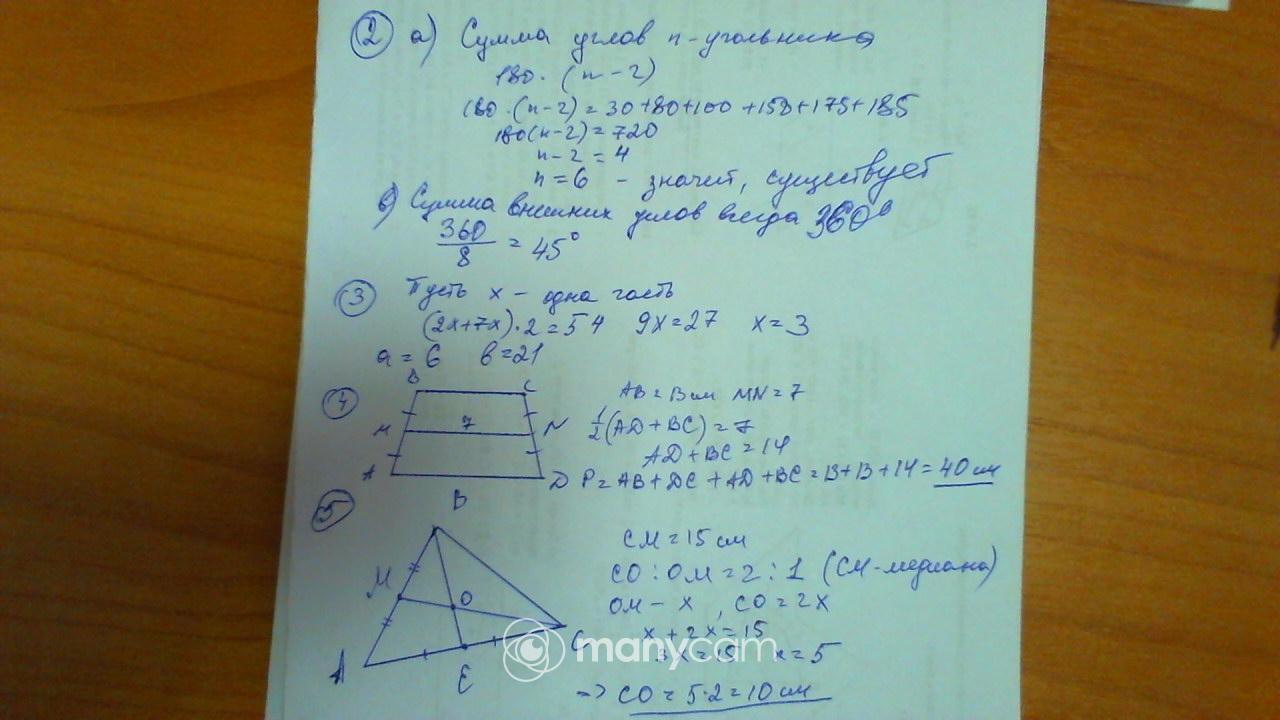 2 а) Сумма углов n-угольника
180·(n-2)
180·(n-2)=30+80+100+150+175+185
180(n-2)=720
n-2=4
n=6 - значит, существует
в) Сумма внешних углов всегда 360°
360/8 = 45°
3 Пусть x - одна часть
(2x+7x)·2=54 9x=27 x=3
a=6 b=21
4 B C AB=13см MN=7
M 7 N 1/2(AD+BC)=7
AD+BC=14
A D P=AB+DC+AD+BC=13+13+14=40см
5 B
CM=15см
M O CO:OM=2:1 (CM-медиана)
OM-x, CO=2x
x+2x=15
C 3x=15 x=5
A E
=> CO=5·2=10см
manycam